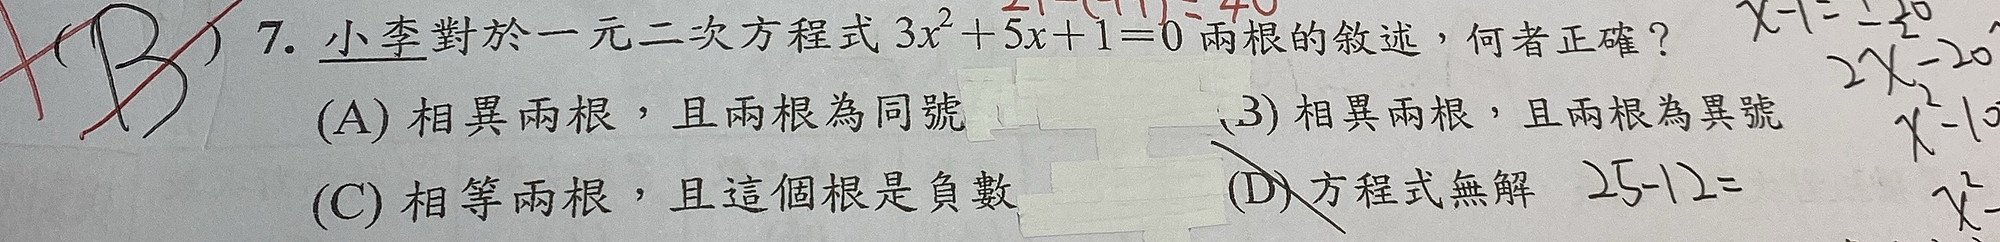 (B) 7. 小李對於一元二次方程式 3x²+5x+1=0 兩根的敘述，何者正確？
(A) 相異兩根，且兩根為同號 (B) 相異兩根，且兩根為異號
(C) 相等兩根，且這個根是負數 (D) 方程式無解 25-12=
2x-20
x²-10
x²-